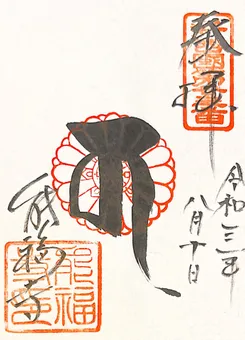 奉拝
令和三年
八月十日
能福寺
能福
寺印